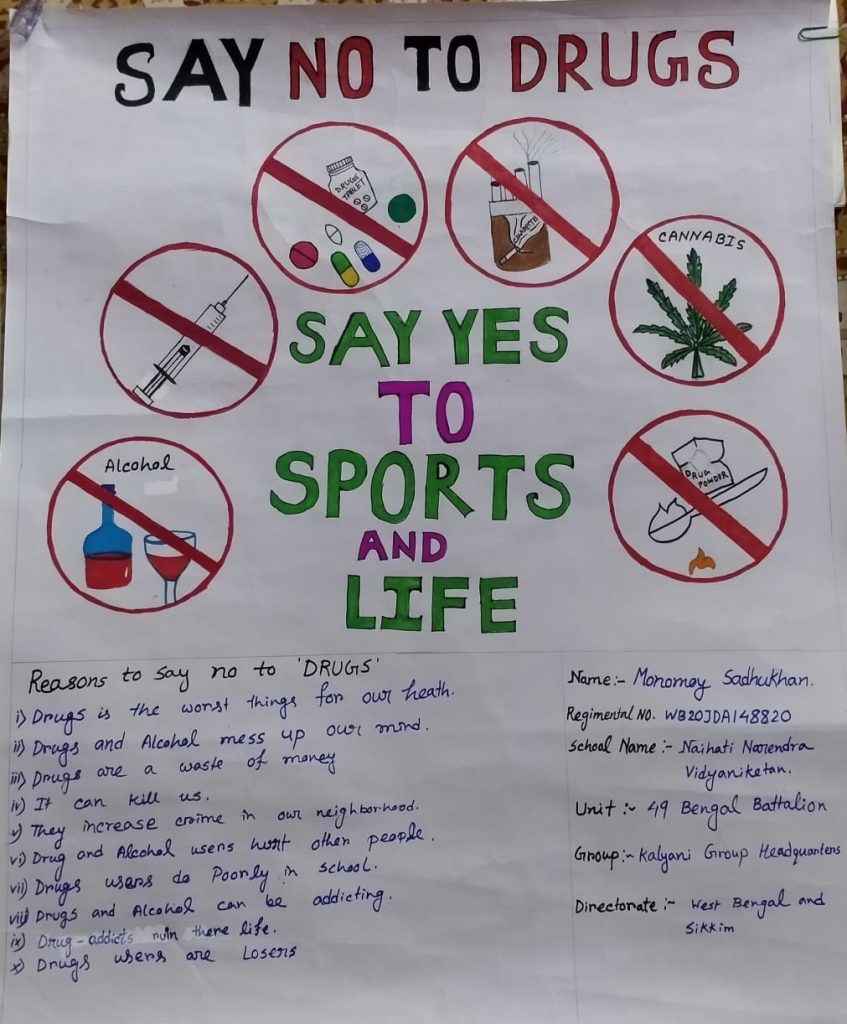 SAY NO TO DRUGS
DRUGS
TABLET
CIGARETTE
CANNABIS
SAY YES
TO
SPORTS
AND
LIFE
Alcohol
DRUG
POWDER
Reasons to say no to 'DRUGS'
i) Drugs is the worst things for our heath.
ii) Drugs and Alcohol mess up our mind.
iii) Drugs are a waste of money
iv) It can kill us.
v) They increase crime in our neighborhood.
vi) Drug and Alcohol users hurt other people.
vii) Drugs users do Poorly in School.
viii) Drugs and Alcohol can be addicting.
ix) Drug-addicts ruin there life.
x) Drugs users are Losers
Name:- Monomoy Sadhukhan.
Regimental NO. WB20JDA148820
School Name:- Naihati Narendra
Vidyaniketan.
Unit:- 49 Bengal Battalion
Group:- Kalyani Group Headquarters
Directorate:- West Bengal and
Sikkim